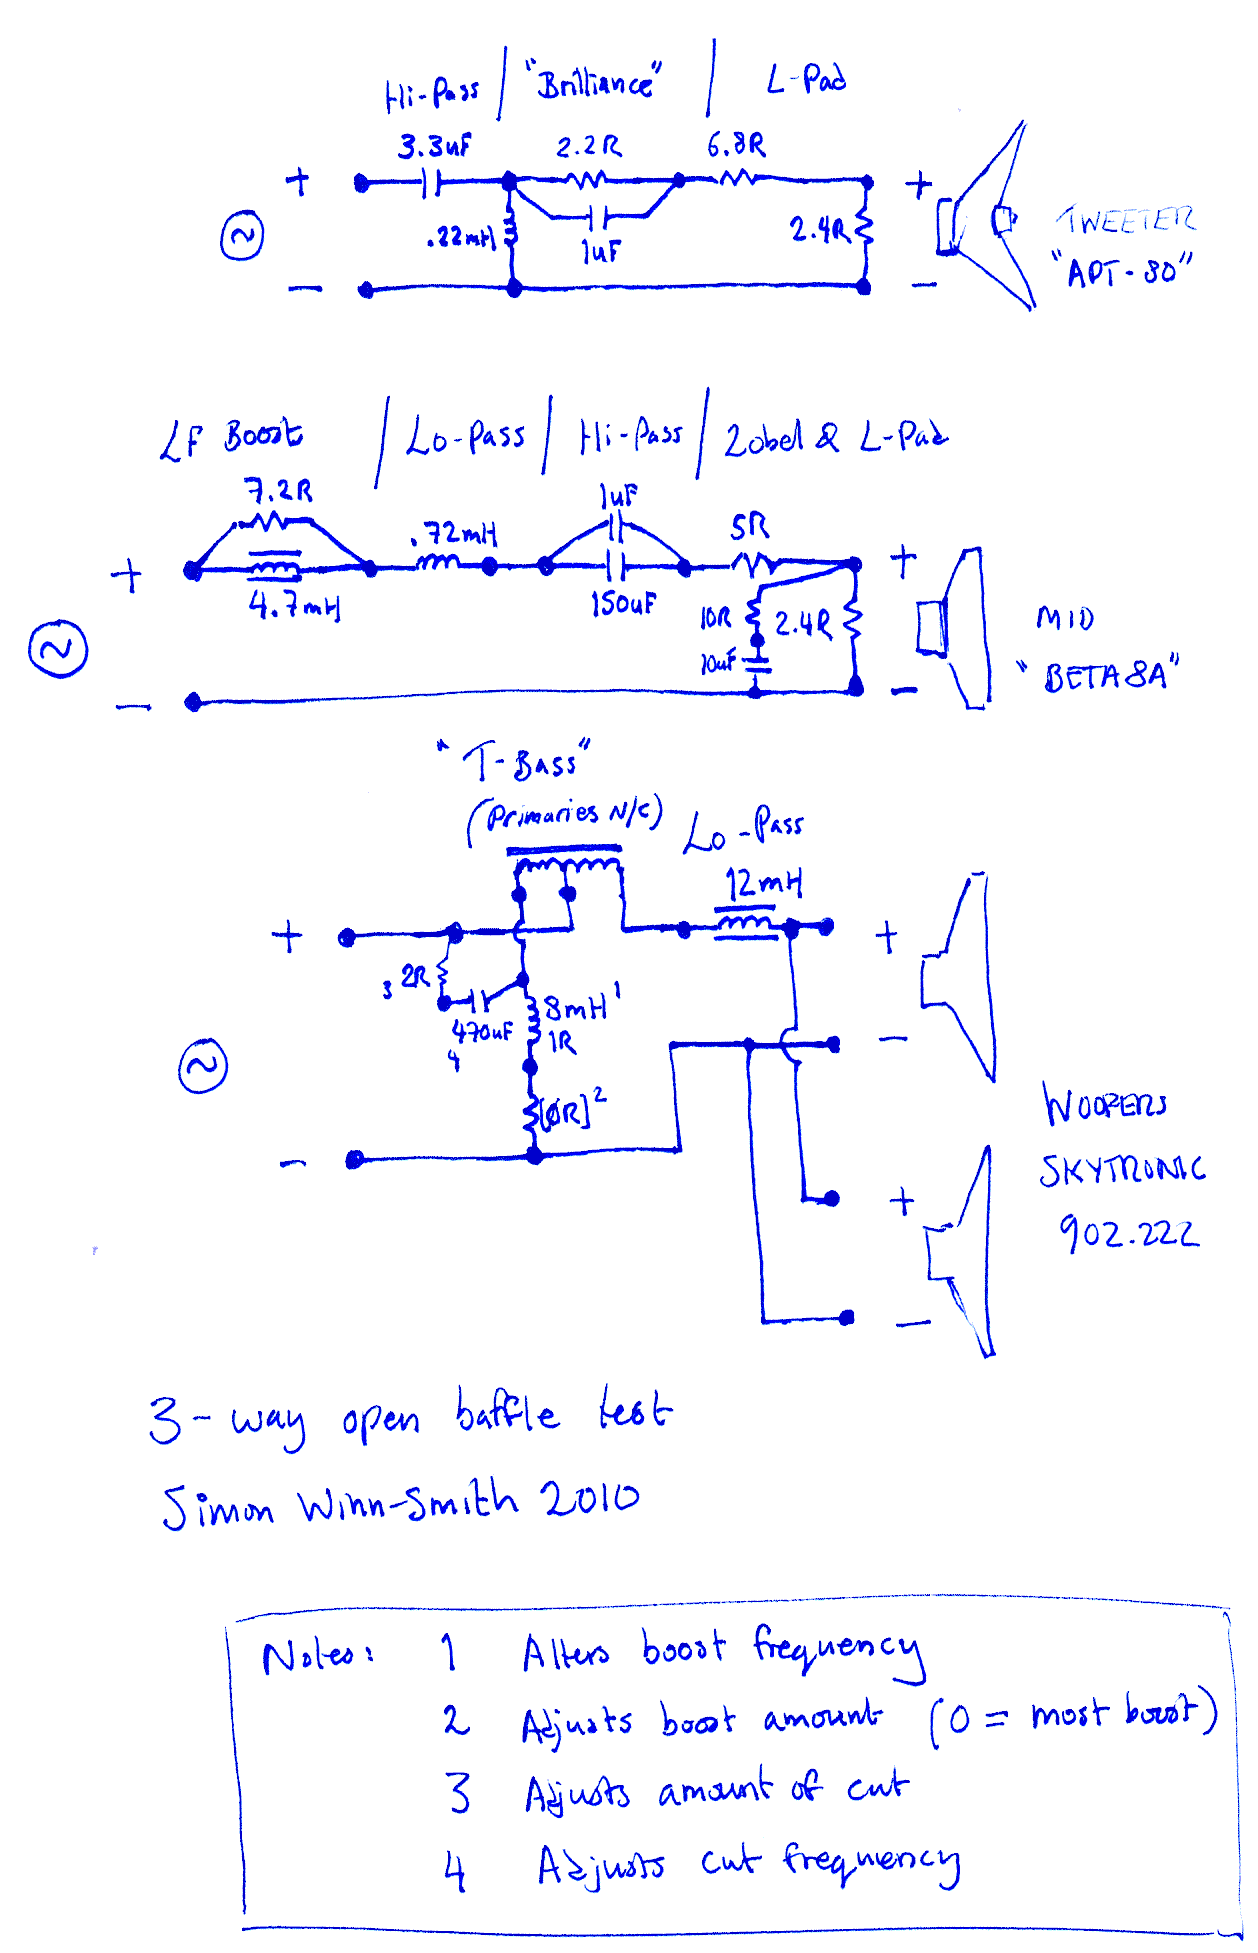 Hi-Pass / "Brilliance" / L-Pad
3.3uF 2.2R 6.8R
+ +
.22mH 1uF 2.4R
TWEETER
"APT-80"
- -
LF Boost / Lo-Pass / Hi-Pass / Zobel & L-Pad
7.2R 1uF
.72mH 5R
+ +
4.7mH 150uF 10R 2.4R
MID
10uF
"BETA8A"
- -
"T-Bass"
(Primaries N/C) Lo-Pass
12mH
+ +
3 2R
8mH 1
470uF 1R
4
-
[0R] 2
-
WOOFERS
SKYTRONIC
902.222
+
-
3-way open baffle test
Simon Winn-Smith 2010
Notes: 1 Alters boost frequency
2 Adjusts boost amount (0 = most boost)
3 Adjusts amount of cut
4 Adjusts cut frequency